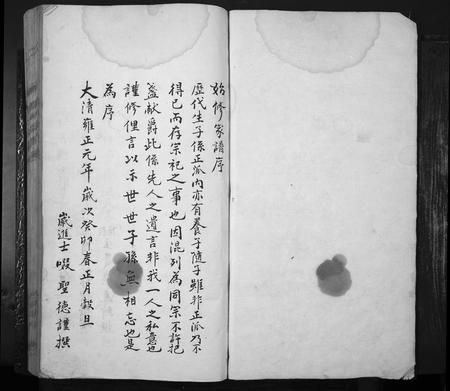 始修家譜序
歷代生子係正派內亦有養子隨子雖非正派乃不
得已而存宗祀之事也因混列為同宗不許把
盞献爵此係先人之遺言非我一人之私意也
謹修俚言以示世世子孫無相忘也是
為序
大清雍正元年歲次癸卯春正月穀旦
歲進士啜聖德謹撰